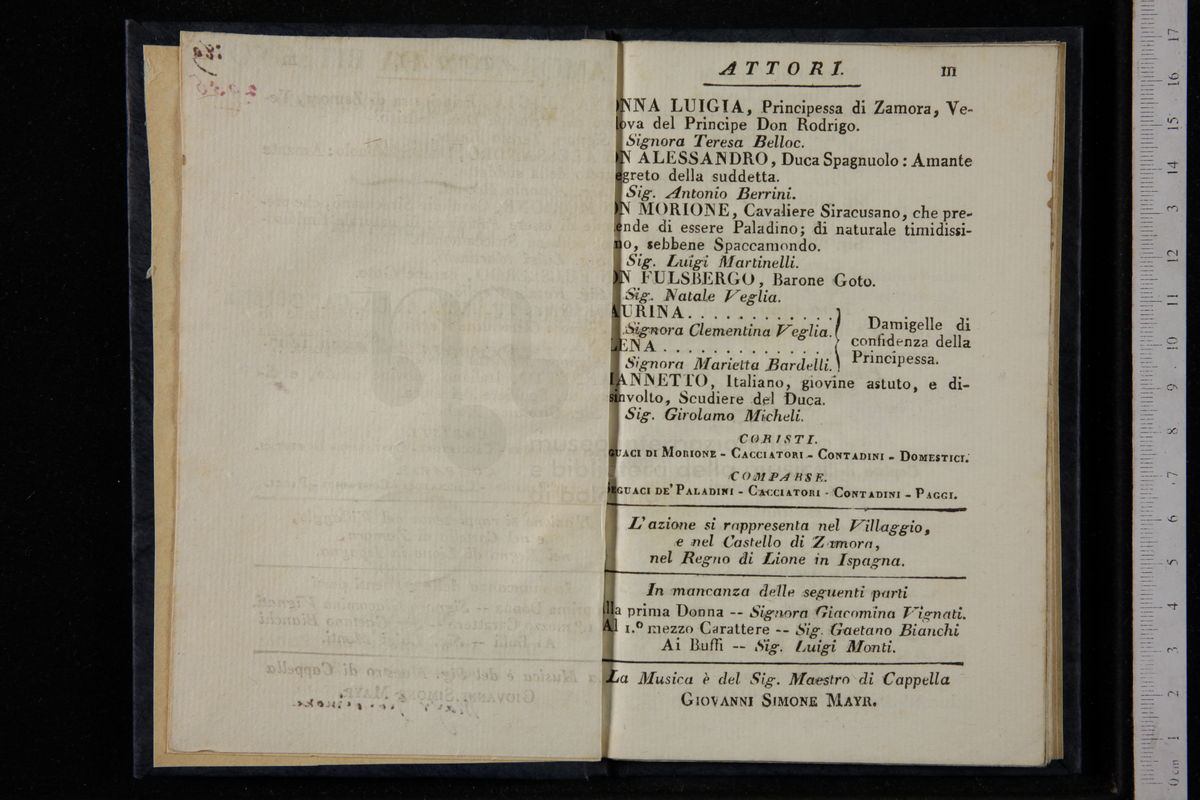 ATTORI.
III
ONNA LUIGIA, Principessa di Zamora, Ve-
lova del Principe Don Rodrigo.
Signora Teresa Belloc.
ON ALESSANDRO, Duca Spagnuolo: Amante
egreto della suddetta.
Sig. Antonio Berrini.
ON MORIONE, Cavaliere Siracusano, che pre-
ende di essere Paladino; di naturale timidissi-
no, sebbene Spaccamondo.
Sig. Luigi Martinelli.
ON FULSBERGO, Barone Goto.
Sig. Natale Veglia.
AURINA. . . . . . . . . . . . .
Signora Clementina Veglia.
LENA . . . . . . . . . . . . . .
Signora Marietta Bardelli.
Damigelle di
confidenza della
Principessa.
IANNETTO, Italiano, giovine astuto, e di-
sinvolto, Scudiere del Duca.
Sig. Girolamo Micheli.
CORISTI.
GUACI DI MORIONE - CACCIATORI - CONTADINI - DOMESTICI.
COMPARSE.
EGUACI DE' PALADINI - CACCIATORI - CONTADINI - PAGGI.
L'azione si rappresenta nel Villaggio,
e nel Castello di Zamora,
nel Regno di Lione in Ispagna.
In mancanza delle seguenti parti
lla prima Donna -- Signora Giacomina Vignati.
Al 1.º mezzo Carattere -- Sig. Gaetano Bianchi
Ai Buffi -- Sig. Luigi Monti.
La Musica è del Sig. Maestro di Cappella
GIOVANNI SIMONE MAYR.
0 cm 1 2 3 4 5 6 7 8 9 10 11 12 13 14 15 16 17